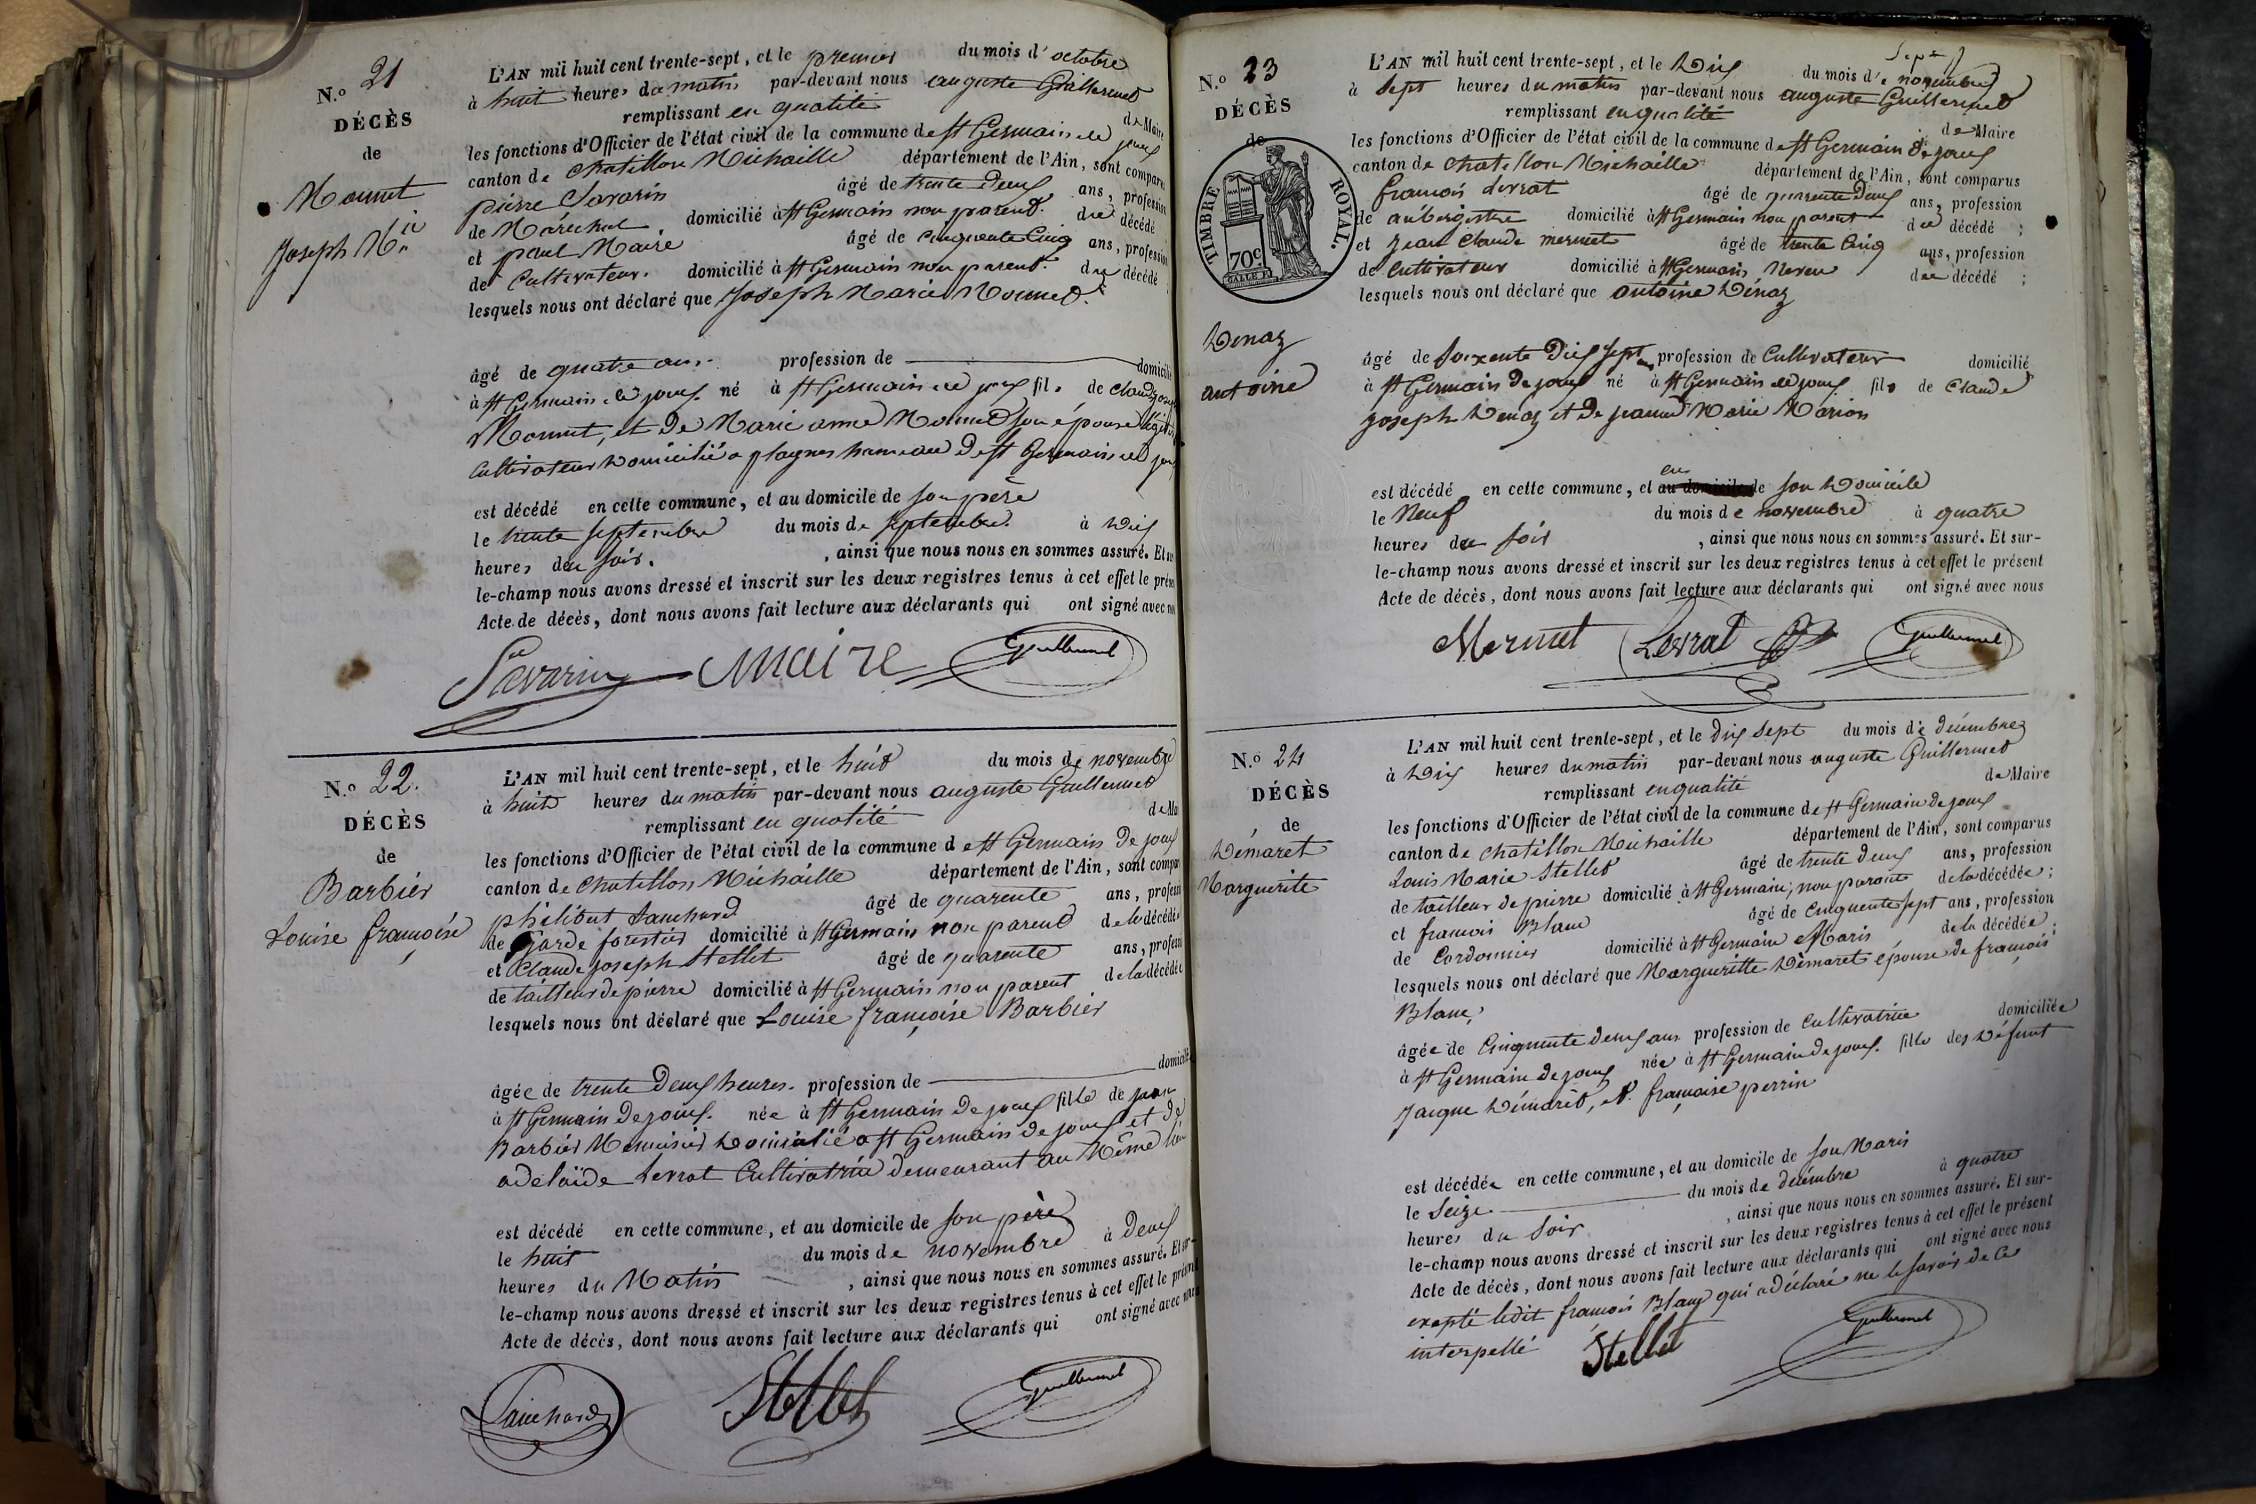 N.o 21
DÉCÈS
de
Mounet
Joseph M.ie
L'AN mil huit cent trente-sept, et le premier du mois d'octobre
à huit heures du matin par-devant nous auguste Guillermet
remplissant en qualité de Maire
les fonctions d'Officier de l'état civil de la commune de St Germain de joux
canton de Chatillon Michaille département de l'Ain, sont comparus
pierre Savarin âgé de trente deux ans, profession
de Maréchal domicilié à St Germain non parent du décédé
et paul Maire âgé de cinquente cinq ans, profession
de Cultivateur. domicilié à St Germain non parent. du décédé
lesquels nous ont déclaré que Joseph Marie Mounet.
âgé de quatre ans. profession de domicilié
à St Germain de joux né à St Germain de joux fils de Claude Joseph
Mounet, et de Marie anne Mounet son épouse
Cultivateur domicilié a plagnes hameau de St Germain de joux
est décédé en cette commune, et au domicile de son père
le trente septembre du mois de septembre. à dix
heures du soir. , ainsi que nous nous en sommes assuré. Et sur-
le-champ nous avons dressé et inscrit sur les deux registres tenus à cet effet le présent
Acte de décès, dont nous avons fait lecture aux déclarants qui ont signé avec nous
Savarin Maire Guillermet
N.o 22.
DÉCÈS
de
Barbier
Louise françoise
L'AN mil huit cent trente-sept, et le huit du mois de novembre
à huit heures du matin par-devant nous auguste Guillermet
remplissant en qualité de Mai
les fonctions d'Officier de l'état civil de la commune de St Germain de joux
canton de Chatillon Michaille département de l'Ain, sont compar
philibert Sauchard âgé de quarente ans, professi
de Garde forestier domicilié à St Germain non parent de la décédée
et Claude joseph Stellet âgé de quarente ans, profess
de tailleur de pierre domicilié à St Germain non parent de la décédée
lesquels nous ont déclaré que Louise françoise Barbier
âgée de trente deux heures. profession de domicilié
à St Germain de joux. née à St Germain de joux fille de jean
Barbier Menuisier domicilié a St Germain de joux et de
adelaïde Levrat Cultivatrice demeurant au Même lieu
est décédé en cette commune, et au domicile de son père
le huit du mois de novembre à deux
heures du Matin , ainsi que nous nous en sommes assuré. Et sur-
le-champ nous avons dressé et inscrit sur les deux registres tenus à cet effet le présent
Acte de décès, dont nous avons fait lecture aux déclarants qui ont signé avec nous
Sauchard Stellet Guillermet
N.o 23
DÉCÈS
de
TIMBRE ROYAL.
70c
Dénaz
antoine
L'AN mil huit cent trente-sept, et le Dix du mois de novembre
à Sept heures du matin par-devant nous auguste Guillermet
remplissant en qualité de Maire
les fonctions d'Officier de l'état civil de la commune de St Germain de joux
canton de Chatillon Michaille département de l'Ain, sont comparus
françois Levrat âgé de quarente deux ans, profession
de aubergiste domicilié à St Germain non parent du décédé ;
et Jean Claude mermet âgé de trente cinq ans, profession
de Cultivateur domicilié à St Germain Neveu du décédé ;
lesquels nous ont déclaré que antoine Dénaz
âgé de soixente Dix sept ans profession de Cultivateur domicilié
à St Germain de joux né à St Germain de joux fils de Claude
joseph Denaz et de jeanne Marie Marion
en
est décédé en cette commune, et au domicile de son domicile
le Neuf du mois de novembre à quatre
heures du soir , ainsi que nous nous en sommes assuré. Et sur-
le-champ nous avons dressé et inscrit sur les deux registres tenus à cet effet le présent
Acte de décès, dont nous avons fait lecture aux déclarants qui ont signé avec nous
Mermet Levrat Guillermet
N.o 24
DÉCÈS
de
Démaret
Marguerite
L'AN mil huit cent trente-sept, et le dix sept du mois de décembre
à Dix heures du matin par-devant nous auguste Guillermet
remplissant en qualité de Maire
les fonctions d'Officier de l'état civil de la commune de St Germain de joux
canton de Chatillon Michaille département de l'Ain, sont comparus
Louis Marie Stellet âgé de trente deux ans, profession
de tailleur de pierre domicilié à St Germain, non parente de la décédée ;
et francois Blanc âgé de Cinquente sept ans, profession
de Cordonnier domicilié à St Germain Maris de la décédée ;
lesquels nous ont déclaré que Margueritte Démaret épouse de françois
Blanc,
âgée de Cinquente deux ans profession de Cultivatrice domiciliée
à St Germain de joux née à St Germain de joux. fille des Défunt
Jacque Démaret, et françoise perrin
est décédée en cette commune, et au domicile de son Maris
le Seize du mois de décembre à quatre
heures du Soir , ainsi que nous nous en sommes assuré. Et sur-
le-champ nous avons dressé et inscrit sur les deux registres tenus à cet effet le présent
Acte de décès, dont nous avons fait lecture aux déclarants qui ont signé avec nous
exepté ledit françois Blanc qui a déclaré ne le savoir de ce
interpellé Stellet Guillermet